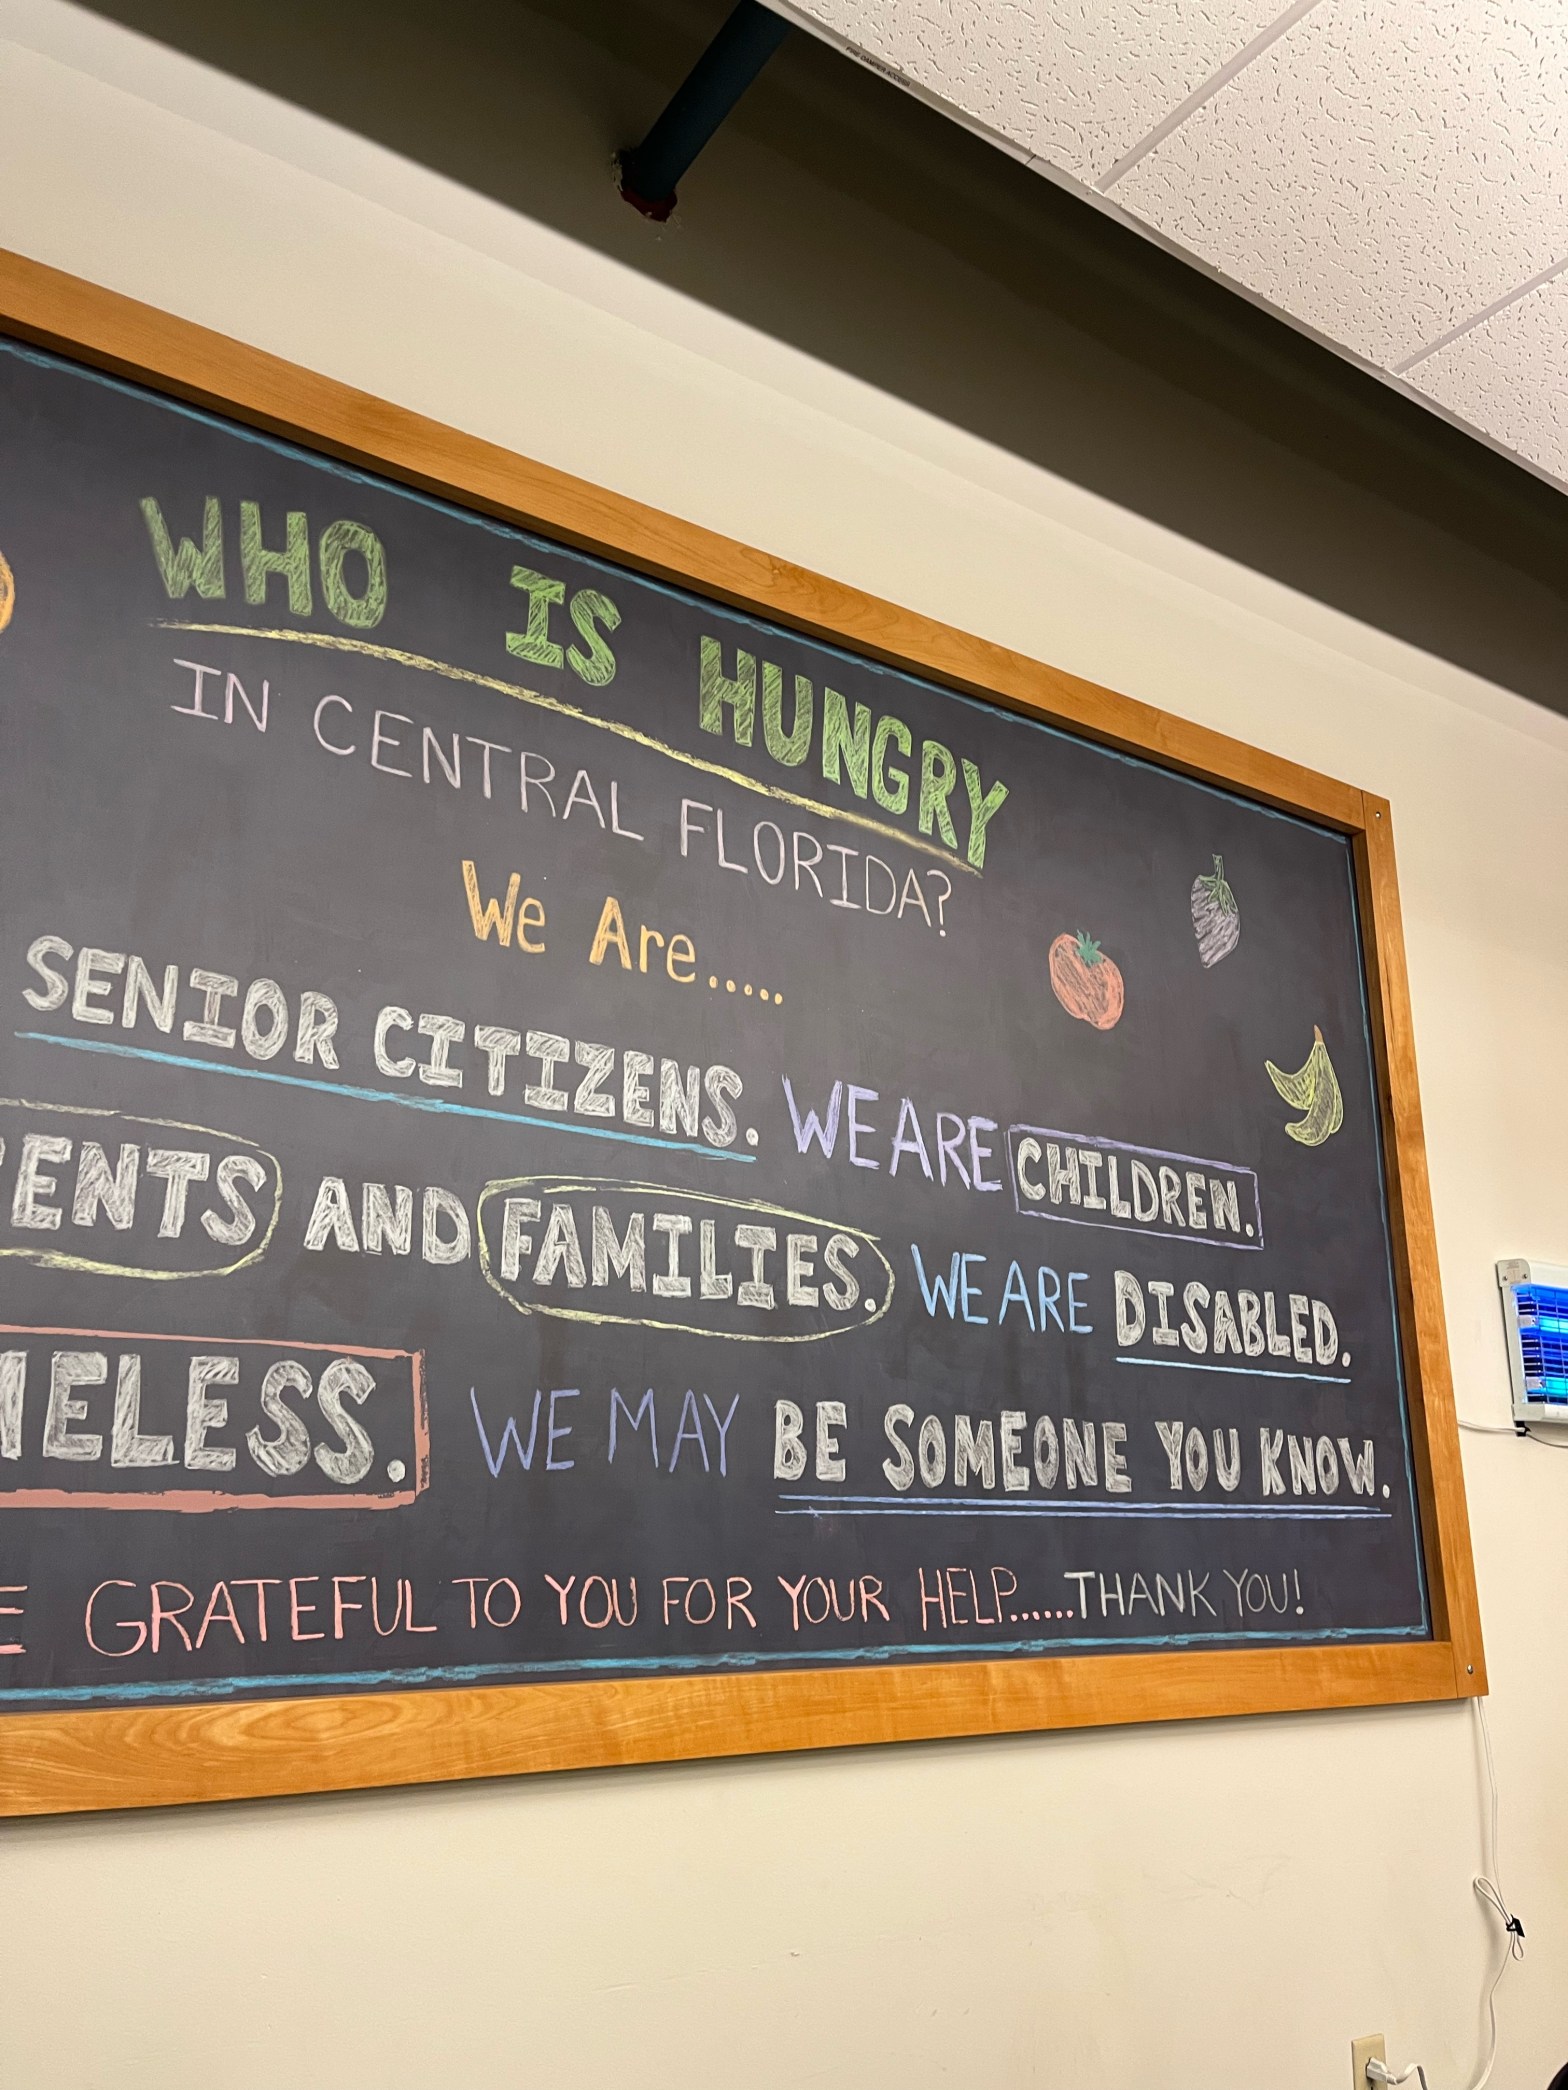 FIRE DAMPER ACCESS
WHO IS HUNGRY
IN CENTRAL FLORIDA?
We Are.....
SENIOR CITIZENS. WE ARE CHILDREN.
ENTS AND FAMILIES. WE ARE DISABLED.
ELESS. WE MAY BE SOMEONE YOU KNOW.
E GRATEFUL TO YOU FOR YOUR HELP......THANK YOU!